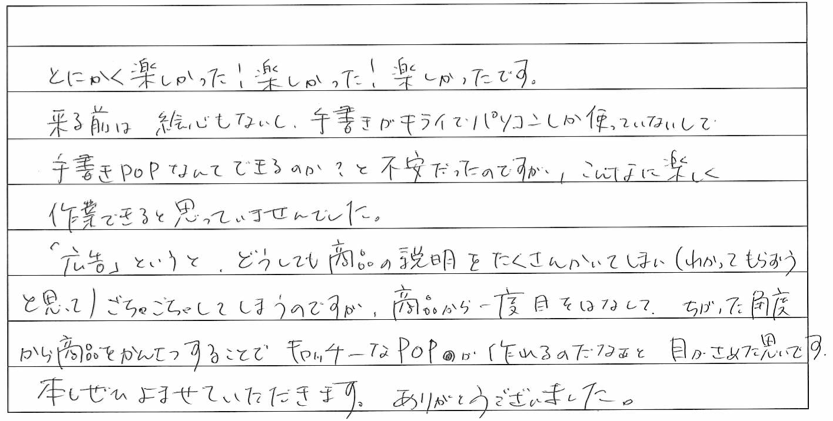 とにかく楽しかった！楽しかった！楽しかったです。
来る前は 絵心もないし、手書きがキライでパソコンしか使っていないしで
手書きPOPなんてできるのか？と不安だったのですが、こんなに楽しく
作業できると思っていませんでした。
「広告」というと、どうしても商品の説明をたくさんかいてしまい（わかってもらおう
と思って）ごちゃごちゃしてしまうのですが、商品から一度目をはなして、ちがった角度
から商品をかんさつすることで キャッチーなPOPが作れるのだなぁと 目がさめた思いです。
本もぜひよませていただきます。ありがとうございました。